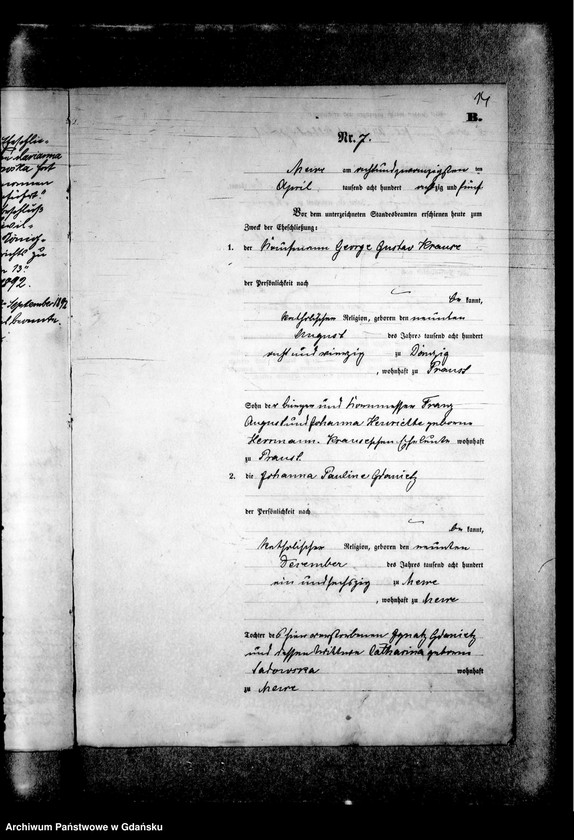 14
B.
Nr. 7.
Mewe am achtundzwanzigsten ten
April tausend acht hundert achtzig und fünf
Vor dem unterzeichneten Standesbeamten erschienen heute zum
Zweck der Eheschließung:
1. der Kaufmann George Gustav Krause
der Persönlichkeit nach
be kannt,
katholischer Religion, geboren den neunten
August des Jahres tausend acht hundert
acht und vierzig zu Danzig
, wohnhaft zu Praust
Sohn der Bürger und Kornmesser Franz
August und Johanna Henriette geborne
Herrmann, Krauseschen Eheleute wohnhaft
zu Praust
2. die Johanna Pauline Gdanietz
der Persönlichkeit nach
be kannt,
katholischer Religion, geboren den neunten
Dezember des Jahres tausend acht hundert
ein und sechszig zu Mewe
, wohnhaft zu Mewe
Tochter des hier verstorbenen Ignatz Gdanietz
und dessen Wittwe Catharina geborne
Sadowska wohnhaft
zu Mewe
1892.
September 1892
Archiwum Państwowe w Gdańsku